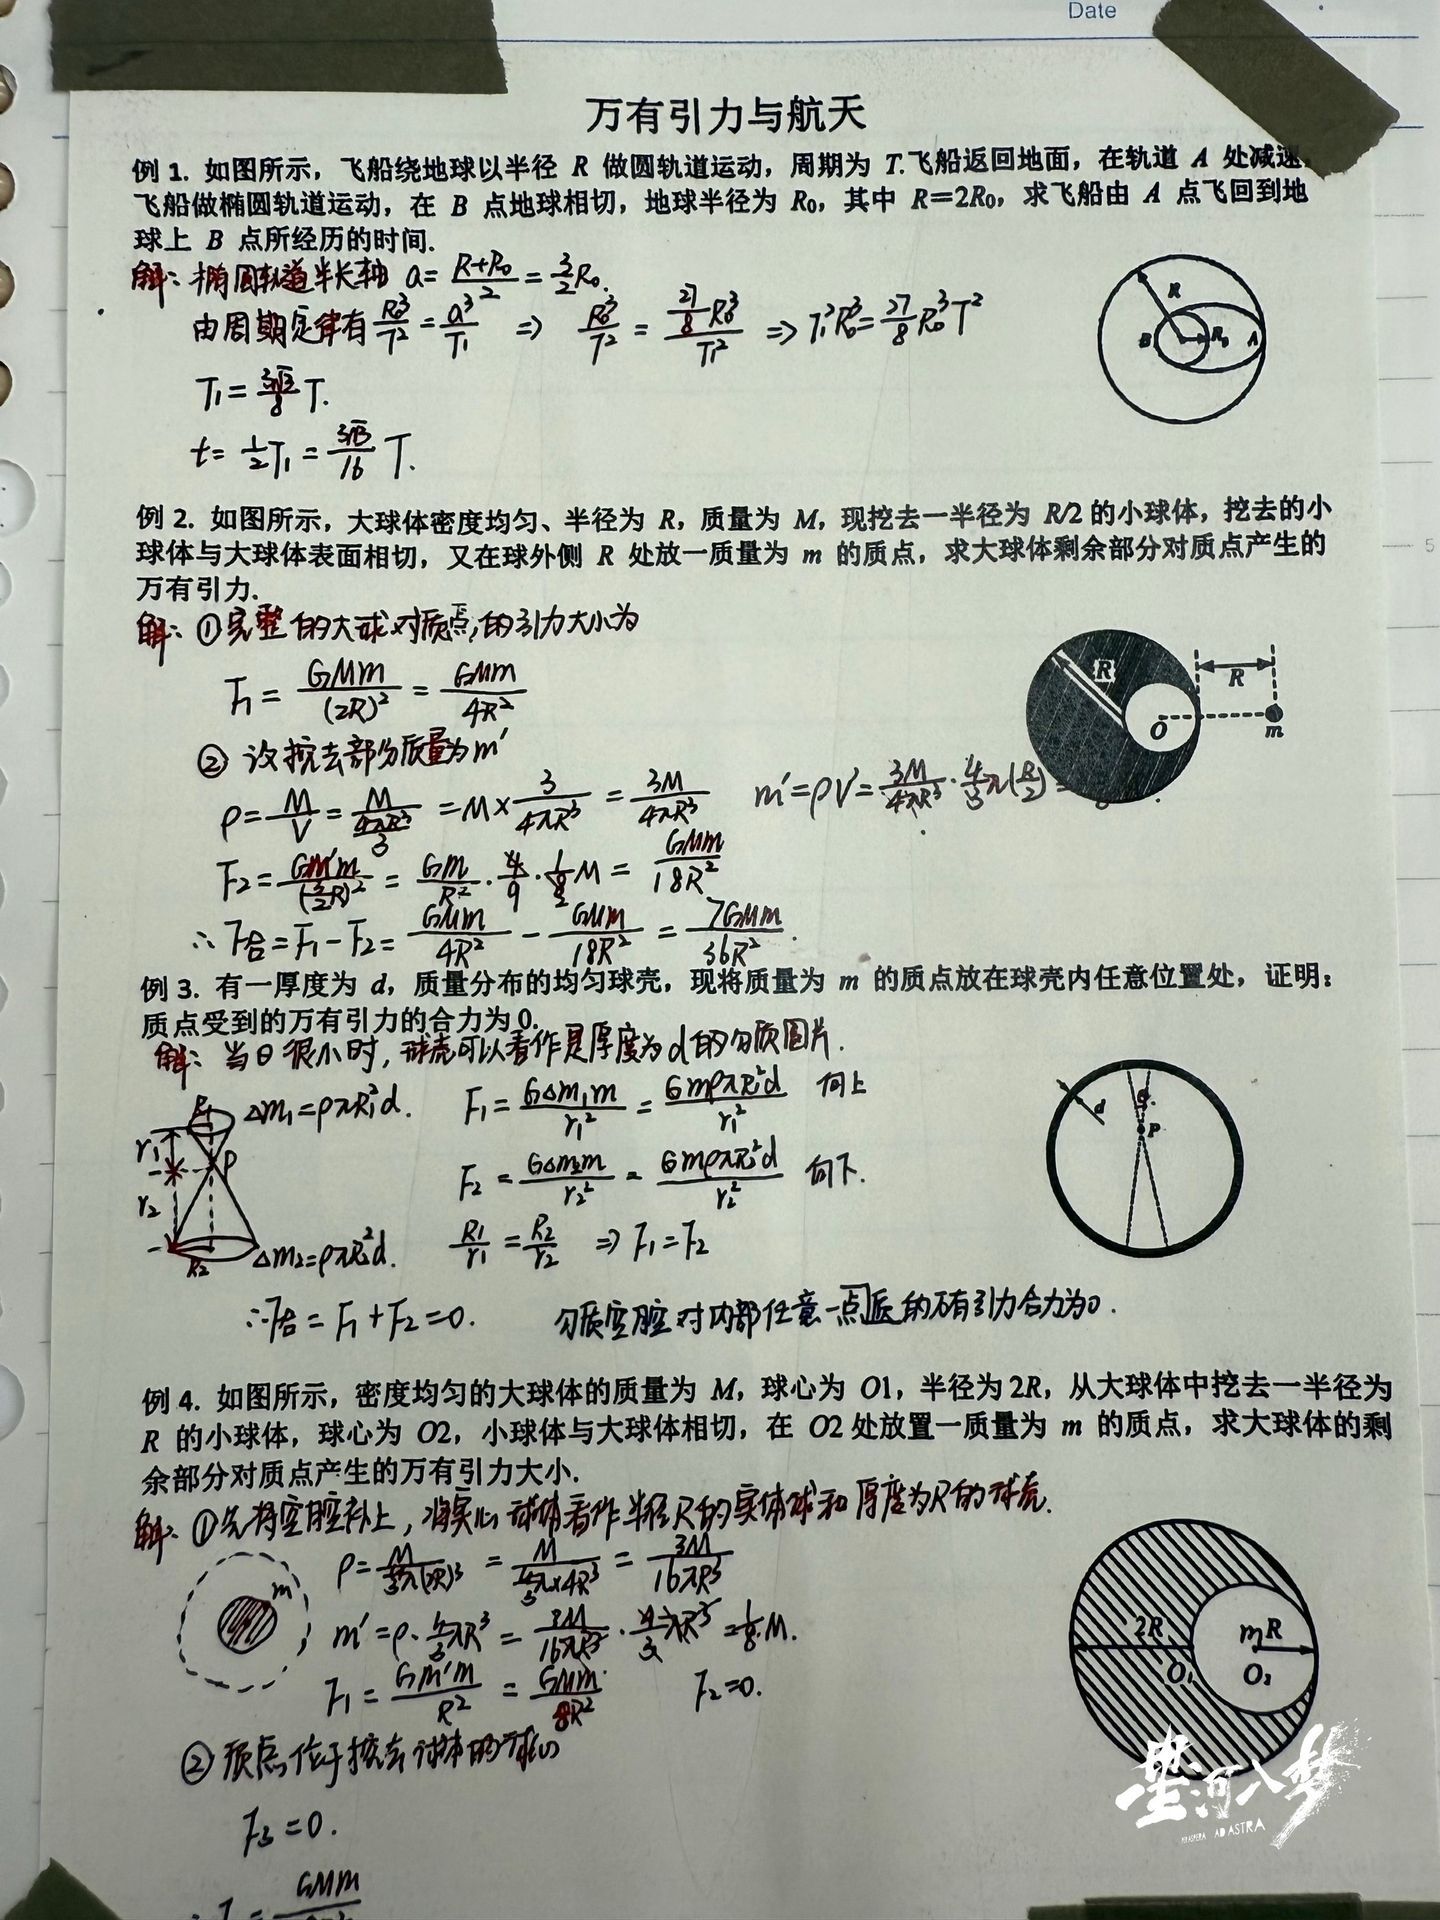 Date
万有引力与航天
例 1. 如图所示，飞船绕地球以半径 R 做圆轨道运动，周期为 T.飞船返回地面，在轨道 A 处减速，
飞船做椭圆轨道运动，在 B 点地球相切，地球半径为 R₀，其中 R=2R₀，求飞船由 A 点飞回到地
球上 B 点所经历的时间.
解：椭圆轨道半长轴 a= (R+R₀)/2 = 3/2 R₀.
由周期定律有 R₀³/T² = a³/T₁ ⇒ R₀³/T² = (27/8 R₀³)/T₁² ⇒ T₁²R₀³= 27/8 R₀³T²
R
B R₀ A
T₁=
T.
t= 1/2 T₁ =
T.
例 2. 如图所示，大球体密度均匀、半径为 R，质量为 M，现挖去一半径为 R/2 的小球体，挖去的小
球体与大球体表面相切，又在球外侧 R 处放一质量为 m 的质点，求大球体剩余部分对质点产生的
万有引力.
5
解：①完整的大球对质点的引力大小为
F₁ = GMm/(2R)² = GMm/4R²
R
R
O m
② 设挖去部分质量为m′
ρ= M/V = M/(4πR³/3) =M× 3/4πR³ = 3M/4πR³ m′=ρV′= 3M/4πR³ · 4/3 π(R/2) =
F₂= Gm′m/(3/2R)² = Gm/R² · 4/9 · 1/8 M = GMm/18R²
∴ F合=F₁−F₂= GMm/4R² − GMm/18R² = 7GMm/36R².
例 3. 有一厚度为 d，质量分布的均匀球壳，现将质量为 m 的质点放在球壳内任意位置处，证明：
质点受到的万有引力的合力为0.
解：当θ很小时，球壳可以看作是厚度为d的匀质圆片.
R₁ Δm₁=ρπR₁²d. F₁= GΔm₁m/r₁² = GmρπR₁²d/r₁² 向上
d θ P
r₁ P
r₂
F₂ = GΔm₂m/r₂² = GmρπR₂²d/r₂² 向下.
R₂ Δm₂=ρπR₂²d. R₁/r₁ = R₂/r₂ ⇒ F₁=F₂
∴F合 = F₁+F₂=0. 匀质空腔对内部任意一点的万有引力合力为0.
例 4. 如图所示，密度均匀的大球体的质量为 M，球心为 O1，半径为 2R，从大球体中挖去一半径为
R 的小球体，球心为 O2，小球体与大球体相切，在 O2 处放置一质量为 m 的质点，求大球体的剩
余部分对质点产生的万有引力大小.
解：①先将空腔补上，将实心球体看作半径R的实体球和厚度为R的球壳.
m ρ= M/(4/3π(2R)³) = M/(4/3π×4R³) = 3M/16πR³
m′=ρ·4/3πR³ = 3M/16πR³ · 4/3πR³ =1/8 M.
F₁ = Gm′m/R² = GMm/8R² F₂=0.
2R mR
O₁ O₂
② 质点位于挖去球体的球心
F₃=0.
GMm
星河入梦
PER ASPERA AD ASTRA